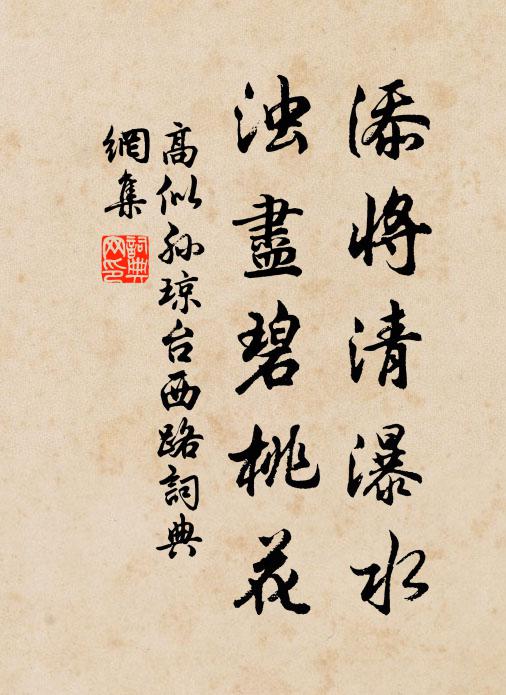 添將清瀑水
浊盡碧桃花
高似孙琼台西路詞典
網集
詞典
网印